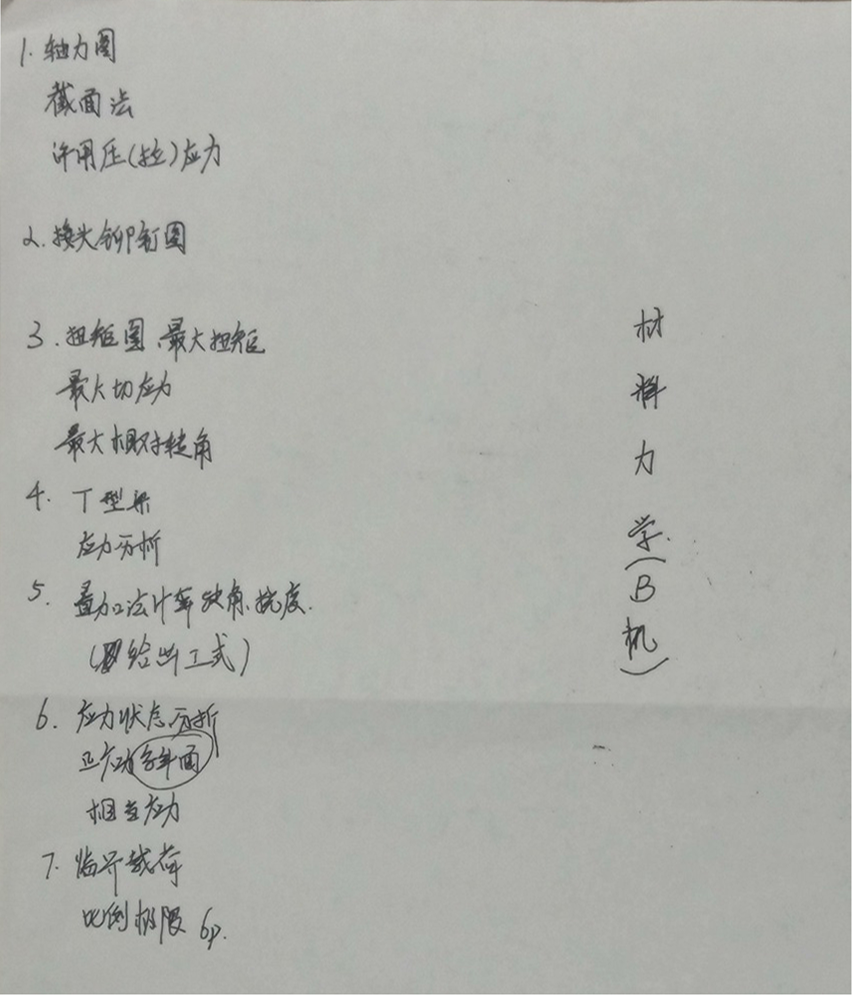 1. 轴力图
截面法
许用压(拉)应力
2. 接头铆钉图
3. 扭矩图、最大扭矩
最大切应力
最大相对转角
4. T型梁
应力分析
5. 叠加法计算转角、挠度.
(给出公式)
6. 应力状态分析
正应力 斜面
相当应力
7. 临界载荷
比例极限 σp.
材料力学(B机)